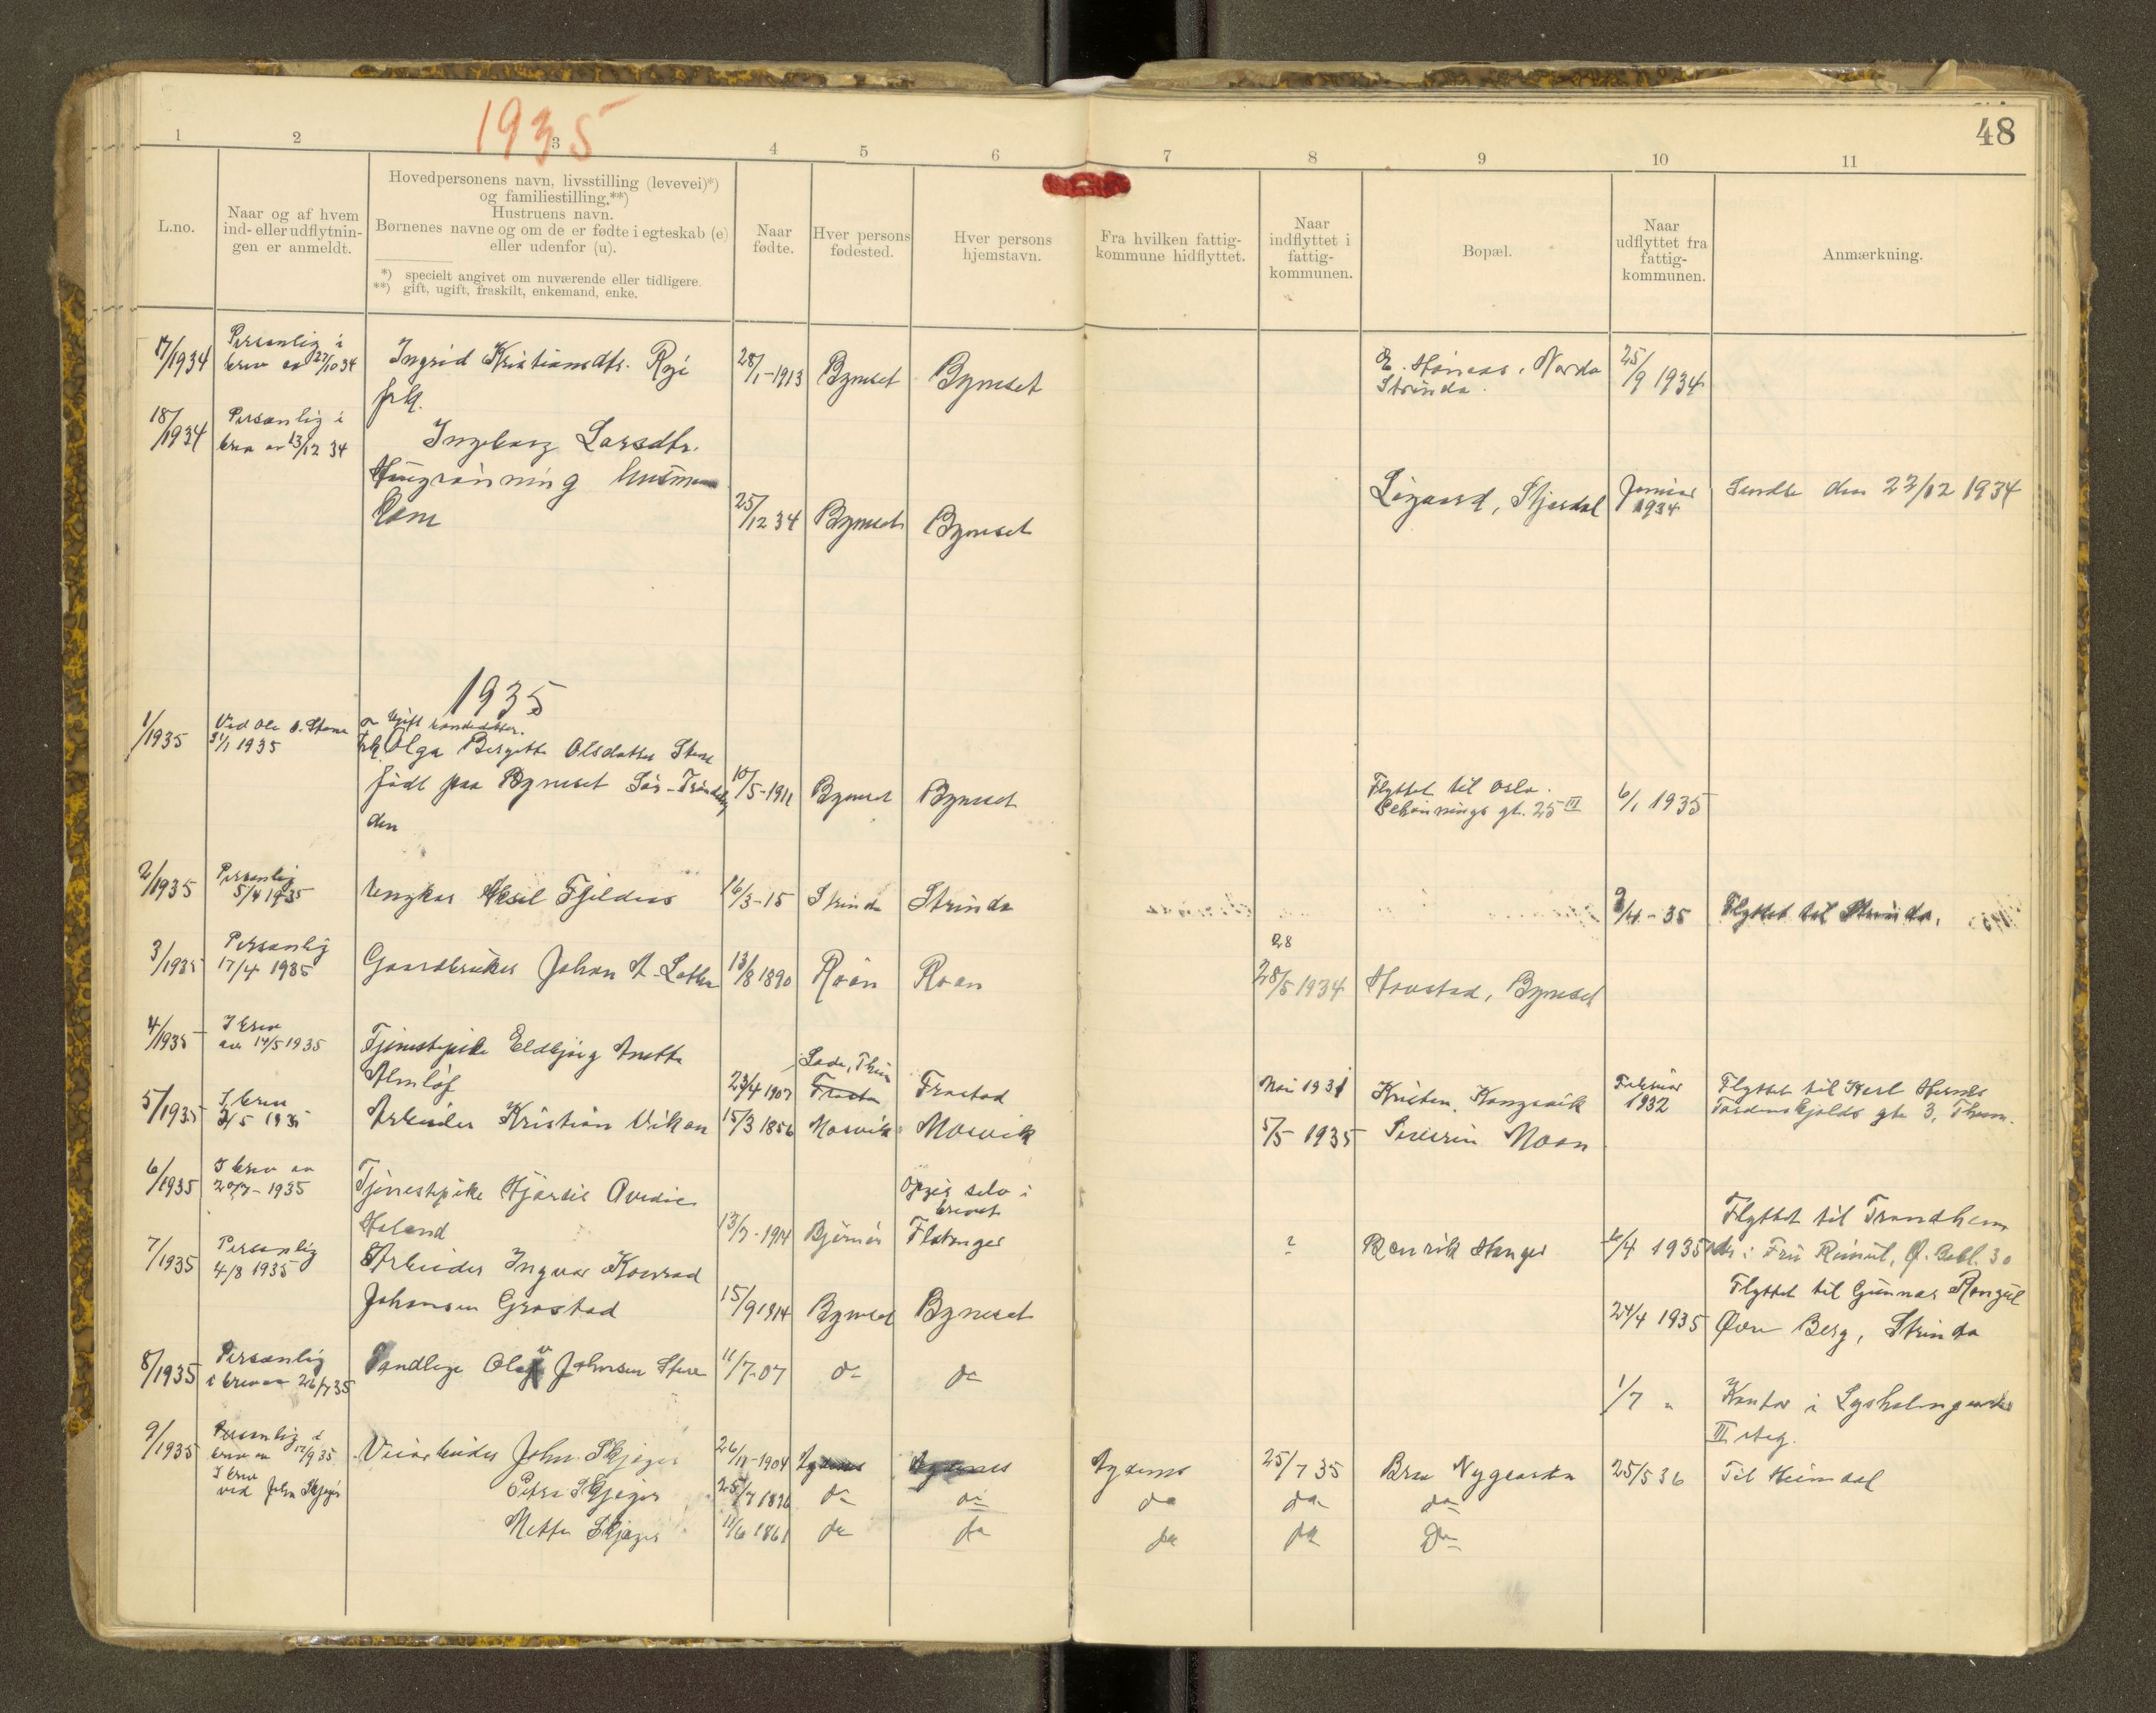 1935
48
1 2 3 4 5 6 7 8 9 10 11
L.no.
Naar og af hvem
ind- eller udflytnin-
gen er anmeldt.
Hovedpersonens navn, livsstilling (levevei)*)
og familiestilling.**)
Hustruens navn.
Børnenes navne og om de er fødte i egteskab (e)
eller udenfor (u).
*) specielt angivet om nuværende eller tidligere.
**) gift, ugift, fraskilt, enkemand, enke.
Naar
fødte.
Hver persons
fødested.
Hver persons
hjemstavn.
Fra hvilken fattig-
kommune hidflyttet.
Naar
indflyttet i
fattig-
kommunen.
Bopæl.
Naar
udflyttet fra
fattig-
kommunen.
Anmærkning.
17/1934 Personlig i
brev av 27/10 34
Ingrid Kristiansdtr. Rye
frk.
28/1-1913 Bynset Bynset
Strinda. 25/9 1934
18/1934 Personlig i
brev av 13/12 34
Ingeborg Larsdtr.
25/12 34 Byneset Byneset
Januar
1934
Sendte den 22/12 1934
1935
1/1935 Ved Ole O. Stene
31/1 1935
Frk. Olga Bergitte Olsdatter Stene
født paa Byneset Sør-Trøndelag
den
10/5-1911 Byneset Byneset
Flyttet til Oslo.
gt. 25 IV
6/1 1935
2/1935 Personlig
5/4 1935
Ungkar Aksel Fjeldaas 16/3-15 Strinda Strinda
9/4-35 Flyttet til Strinda.
3/1935 Personlig
17/4 1935
Gaardbruker Johan A. 13/8 1890 Roan Roan
28
28/5 1934 Havstad, Byneset
4/1935 I brev
av 14/5 1935
Tjenestepike Eldbjørg Anette
Almløf
23/4 1907 Lade, Thjem
Frosta Frostad
Mai 1931 Kristen. Kongsvik
Februar
1932
Flyttet til Karl
Tordenskjolds gte 3, Thjem.
5/1935 I brev
2/5 1935
Arbeider Kristian Vikan 15/3 1856 Mosvik Mosvik
5/5 1935 Severin Moan
6/1935 I brev av
20/7-1935
Tjenestepike Hjørdis Ovedie
Haland
13/7-1914 Bjørnør
Opgir selv i
brevet
Flatanger
? Henrik Stanger
6/4 1935
Flyttet til Trondhem
adr: Fru Rimul, Ø. Bakl. 30
7/1935 Personlig
4/8 1935
Arbeider Ingvar Konrad
Johansen Grostad
15/9 1914 Byneset Byneset
24/4 1935
Flyttet til Gunnar Rangul
Øvre Berg, Strinda
8/1935 Personlig
i brev av 26/7 35
Tandlege Olav Johnsen Stene 11/7-07 do do
1/7 "
Kontor i Lysholmgaarden
III etag.
9/1935 Personlig i
brev av 12/9 35
I brev
ved John Skjøger
Veiarbeider John Skjøger 26/11-1904 Agdenes Agdenes Agdenes 25/7 35 Bra Nygaarden 25/5 36 Til Heimdal
Petra Skjøger 25/7 1896 do do do do do
Mette Skjøger 11/6 1861 do do do do do